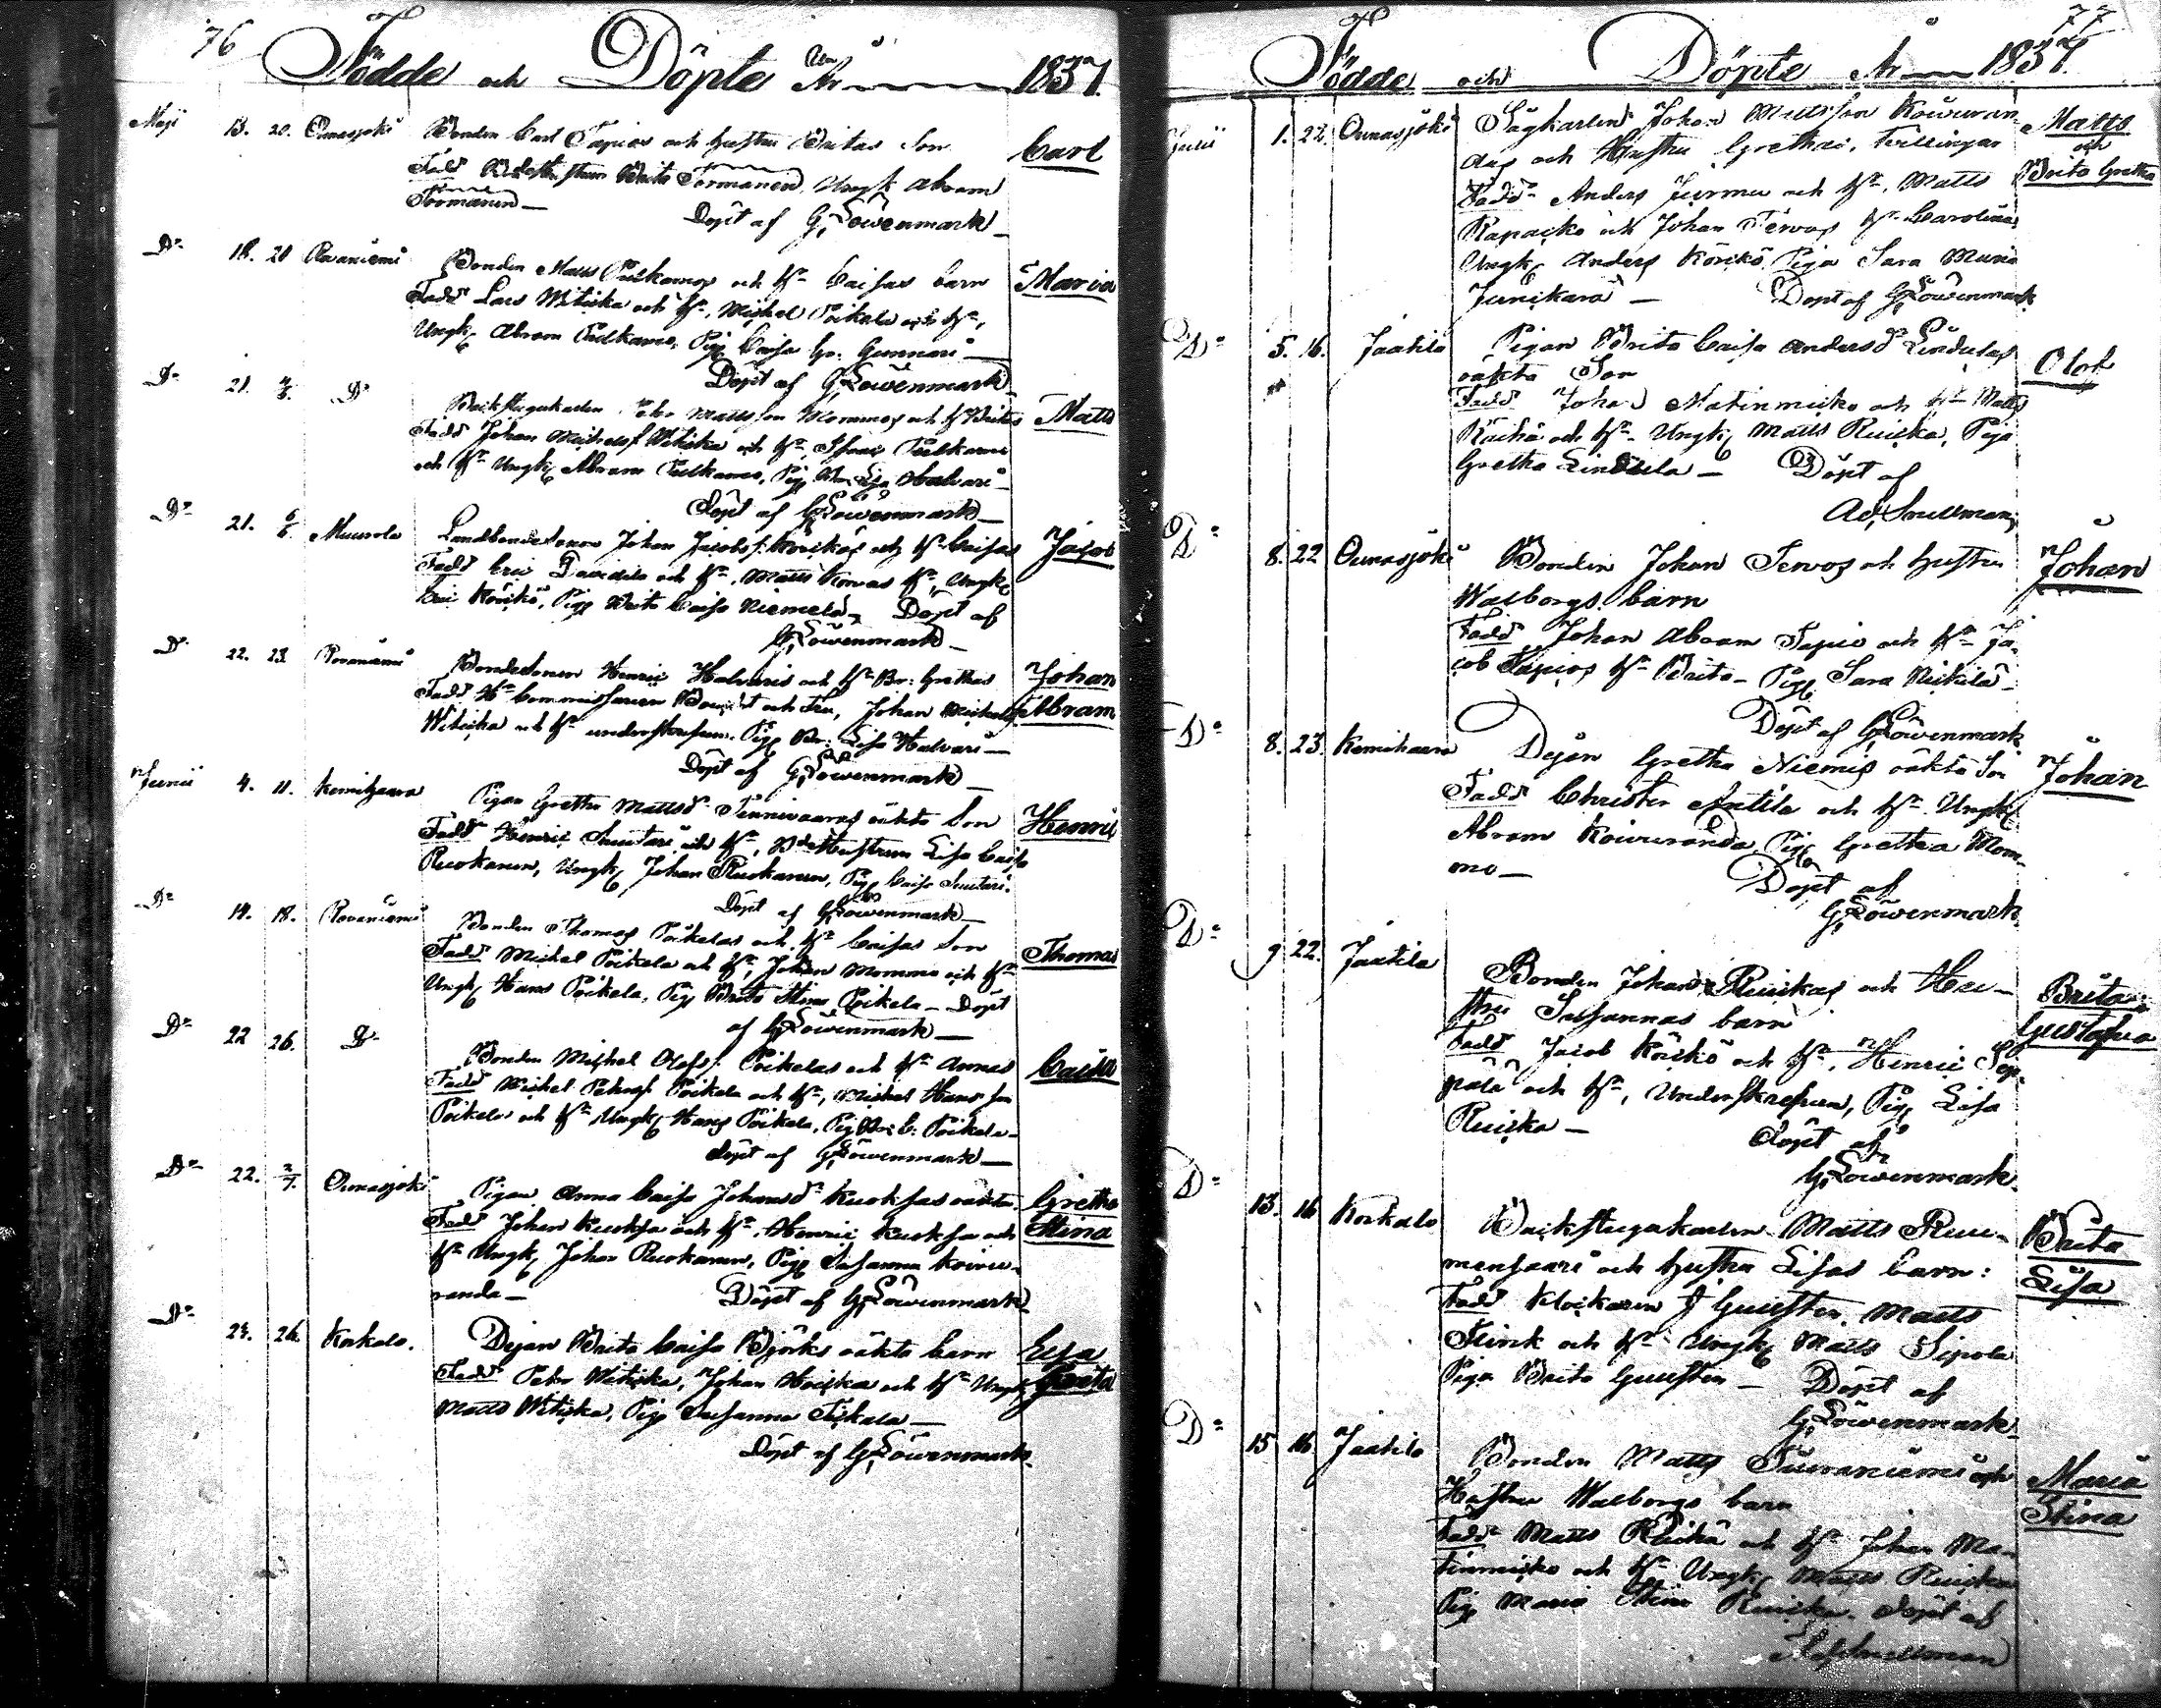 76
Födde och Döpte År 1837.
Maji 13. 20. Ounasjoki Bonden Carl Tapios och Hustru Britas Son Carl
Fadd Enkohustrun Brita Tormanen, Ungk Abram
Tormanen —
Döpt af G, Löwenmark —
D:o 18. 20 Rovaniemi Bonden Matts Pulkamos och H:u Caisas barn Maria
Fadd Lars Witiska och H:u, Michel Poikela och H:u,
Ungk, Abram Pulkamo, Pig Caisa Gr: Gunnari —
Döpt af G, Löwenmark
D:o 21. 4/6. D:o Backstugukarlen Petr Mattsson Mommos och H Britas Matts
Fadd Johan Michelss. Witiska och H:u, Pulkamo
och H:u Ungk, Abram Pulkamo, Pig Lisa Halvari —
Döpt af G Löwenmark —
D:o 21. 6/6. Muurola Landbondesonen Johan Jacobs. Körikös och H:u Caisas Jacob
Fadd Eric Davidila och H:u, Matts Korvas H:u, Ungk,
Eric Körikö, Pig Brita Caisa Niemelä — Döpt af
G, Löwenmark —
D:o 22. 23 Rovaniemi Bondesonen Henric Halvaris och H:u Br: Grethas Johan
Fadd H:r Commissarien och Fru, Johan Abram
Witiska och H:u understrufven, Pig Br: Lisa Halvari —
Döpt af G, Löwenmark —
Junii 4. 11. Kemihaara Pigan Gretha Mattsd:r Tennivaaras oäkta Son Henric
Fadd Henric Suutari och H:u, Enkehustrun Lisa Caisa
Ruokanen, Ungk, Johan Ruokanen, Pig Caisa Suutari.
Döpt af G, Löwenmark —
D:o 14. 18. Rovaniemi Bonden Thomas Poikelas och H:u Caisas Son Thomas
Fadd Michel Poikela och H:u, Johan Mommo och H:u
Ungk, Hans Poikela, Pig Brita Stina Poikela — Döpt
af G, Löwenmark —
D:o 22 26. D:o Bonden Michel Olofs. Poikelas och H:u Annas Caisa
Fadd Michel Petersf. Poikela och H:u, Michel Hansson
Poikela och H:u Ungk, Hans Poikela, Pig Br: C: Poikela —
Döpt af G, Löwenmark —
D:o 22. 2/7. Ounasjoki Pigan Anna Caisa Johansd:r Kuoksas oäkta Gretha
Fadd Johan Kuoksa och H:u, Henric Kuoksa och Stina
H:u Ungk, Johan Ruokanen, Pig Susanna Koivu-
randa — Döpt af G, Löwenmark
D:o 24. 26. Korkalo. Dejan Brita Caisa Björks oäkta barn Lisa
Fadd Petr Witiska, Johan och H:u Ungk Greta
Matts Witiska, Pig Susanna Tiskala —
Döpt af G, Löwenmark
77
Födde och Döpte År 1837.
Julii 1. 22. Ounasjoki Sågkarlen Johan Mattsson Koivuran- Matts
das och Hustru Grethas, Tvillingar och
Fadd Anders Jurmu och H:u, Matts Brita Gretha
Rapacko och Johan Tervos H:u Carolina
Ungk, Anders Körikö, Piga Sara Maria
Junikara — Döpt af G Löwenmark
D:o 5. 16. Jaatila Pigan Brita Caisa Andersd:r Lindelas Olof
oäkta Son
Fadd Johan Matinmicko och H:u Matts
Räihä och H:u — Ungk, Matts Ruiska, Piga
Gretha Lindela — Döpt af
Ad, Snellman,
D:o 8. 22 Ounasjoki Bonden Johan Tervos och Hustru Johan
Walborgs barn
Fadd Johan Abram Tapio och H:u Ja-
cob Tapios H:u Brita — Pig Sara Nickilä —
Döpt af G Löwenmark
D:o 8. 23. Kemihaara Dejan Gretha Niemis oäkta Son Johan
Fadd Christer Antila och H:u Ungk,
Abram Koivuranda, Pig Gretha Mom-
mo — Döpt af
G, Löwenmark.
D:o 9 22. Jaatila Bonden Johan Ruiskas och Hu- Brita
stru Susannas barn Gustafva
Fadd Jacob Körkö och H:u, Henric Sep-
pälä och H:u, Understrefven, Pig Lisa
Ruiska — Döpt af
G, Löwenmark.
D:o 13. 16 Korkalo Backstugukarlen Matts Ruu- Brita
mensaari och Hustru Lisas barn: Lisa
Fadd Klockaren J Gunsten, Matts
Flink och H:u Ungk, Matts Sipola
Piga Brita Gunsten — Döpt af
G, Löwenmark.
D:o 15 16 Jaatila Bonden Matts Tuuraniemis och Maria
Hustru Walborgs barn Stina
Fadd Matts Räihä och H:u Johan Ma-
tinmicko och H:u Ungk, Matts Ruiska
Pig Maria Stina Ruiska. Döpt af
Ad Snellman